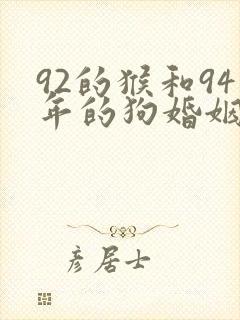 92的猴和94
年的狗婚姻
彦居士